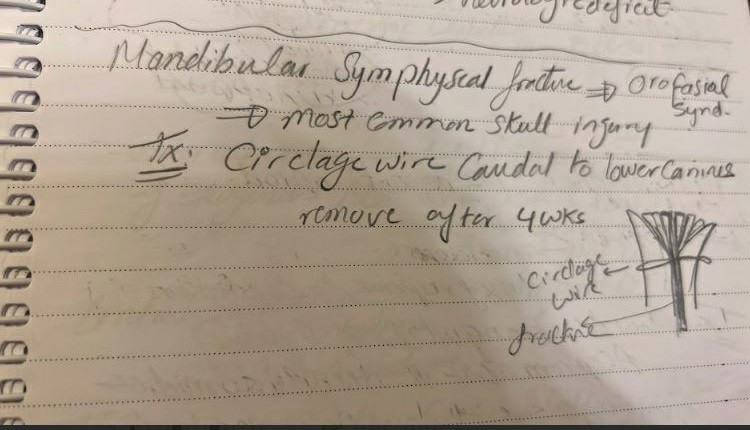 neurologic deficit
Mandibular Symphyseal fracture ⇒ Orofasial
Synd.
⇒ most common skull injury
Tx: Circlage wire Caudal to lower Canines
remove after 4 wks
circlage
wire
fracture